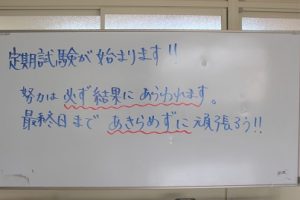 定期試験が始まります!!
努力は必ず結果にあらわれます。
最終日まであきらめずに頑張ろう!!